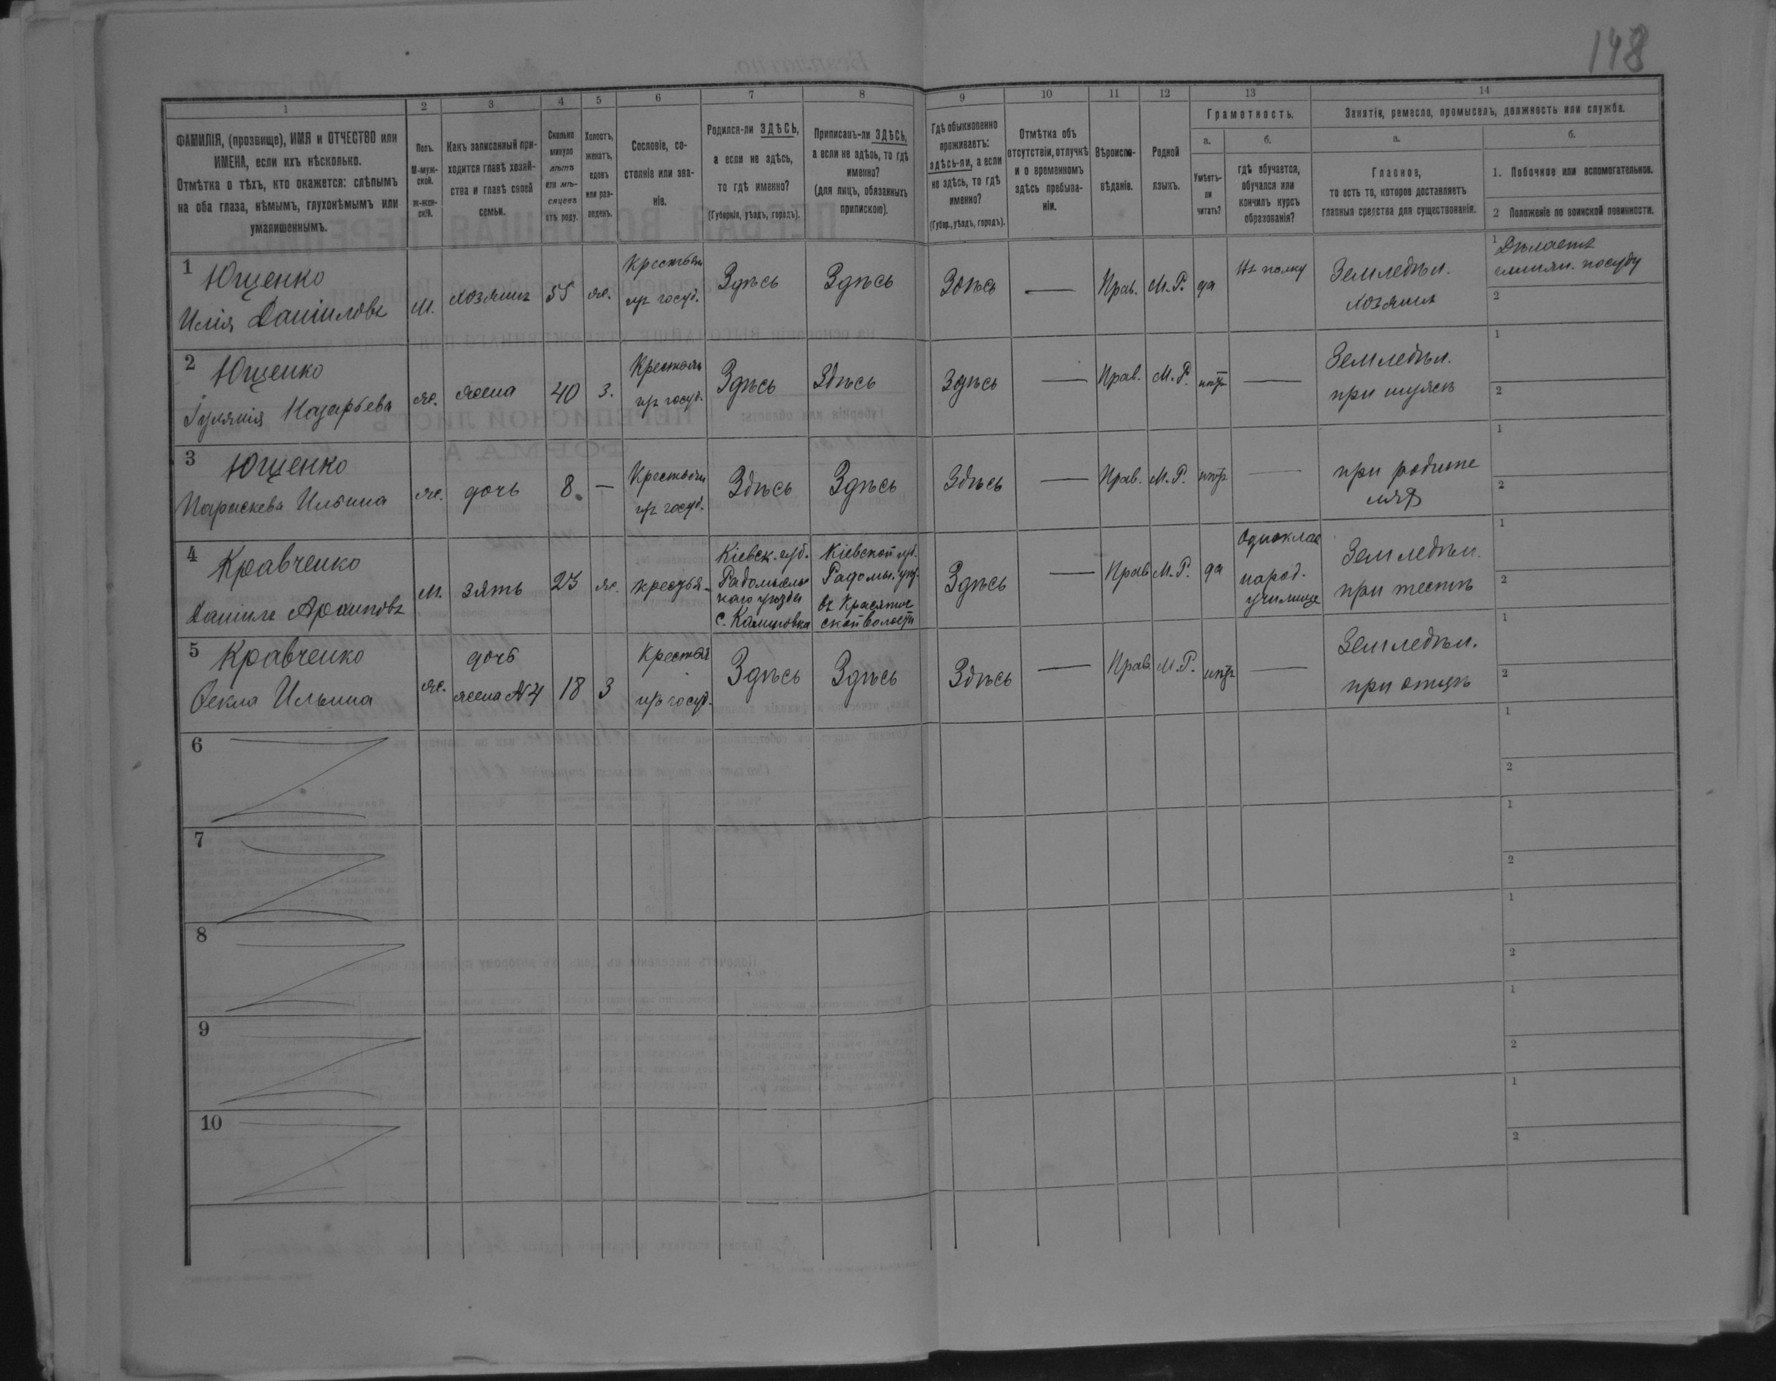 148
1
2
3
4
5
6
7
8
9
10
11
12
13
14
ФАМИЛІЯ, (прозвище), ИМЯ и ОТЧЕСТВО или
ИМЕНА, если ихъ нѣсколько.
Отмѣтка о тѣхъ, кто окажется: слѣпымъ
на оба глаза, нѣмымъ, глухонѣмымъ или
умалишеннымъ.
Полъ.
М-муж-
ской.
ж-жен-
скій.
Какъ записанный при-
ходится главѣ хозяй-
ства и главѣ своей
семьи.
Сколько
минуло
лѣтъ
или мѣ-
сяцевъ
отъ роду.
Холостъ,
женатъ,
вдовъ
или раз-
веденъ.
Сословіе, со-
стояніе или зва-
ніе.
Родился-ли ЗДѢСЬ,
а если не здѣсь,
то гдѣ именно?
(Губернія, уѣздъ, городъ).
Приписанъ-ли ЗДѢСЬ,
а если не здѣсь, то гдѣ
именно?
(для лицъ, обязанныхъ
припискою).
Гдѣ обыкновенно
проживаетъ:
здѣсь-ли, а если
не здѣсь, то гдѣ
именно?
(Губер., уѣздъ, городъ).
Отмѣтка объ
отсутствіи, отлучкѣ
и о временномъ
здѣсь пребыва-
ніи.
Вѣроиспо-
вѣданіе.
Родной
языкъ.
Грамотность.
а.
Умѣетъ-
ли
читать?
б.
гдѣ обучается,
обучался или
кончилъ курсъ
образованія?
Занятія, ремесло, промыселъ, должность или служба.
а.
Главное,
то есть то, которое доставляетъ
главныя средства для существованія.
б.
1. Побочное или вспомогательное.
2 Положеніе по воинской повинности.
1 Ющенко
Илія Даниловъ
М.
хозяинъ
55
ж.
Крестьян
изъ госуд.
Здѣсь
Здѣсь
Здѣсь
—
Прав.
М.Р.
да
Въ полку
Земледѣл.
хозяинъ
1 Дѣлаетъ
глинян. посуду
2
2 Ющенко
Назарьева
же.
жена
40
з.
Крестьян
изъ госуд.
Здѣсь
Здѣсь
Здѣсь
—
Прав.
М.Р.
нѣтъ
—
Земледѣл.
при мужѣ
1
2
3 Ющенко
Параскева Ильина
же.
дочь
8
—
Крестьян
изъ госуд.
Здѣсь
Здѣсь
Здѣсь
—
Прав.
М.Р.
нѣтъ
—
при родите
ляхъ
1
2
4 Кравченко
Даніилъ Архиповъ
М.
зять
23
же.
крестья-
Кіевск. губ.
Радомысль
каго уѣзда
Кіевской губ.
Радомы. уѣз.
ской волости
Здѣсь
—
Прав
М.Р.
да
Одноклас
народ.
училище
Земледѣл.
при тестѣ
1
2
5 Кравченко
Ѳекла Ильина
же.
дочь
жена №4
18
з
Крестья
изъ госуд.
Здѣсь
Здѣсь
Здѣсь
—
Прав
М.Р.
нѣтъ
—
Земледѣл.
при отцѣ
1
2
6
1
2
7
1
2
8
1
2
9
1
2
10
1
2